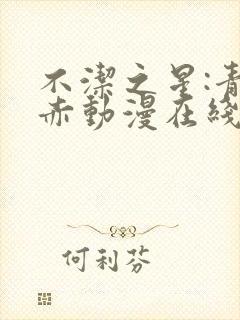 不潔之星:青
赤動漫在綫
何利芬